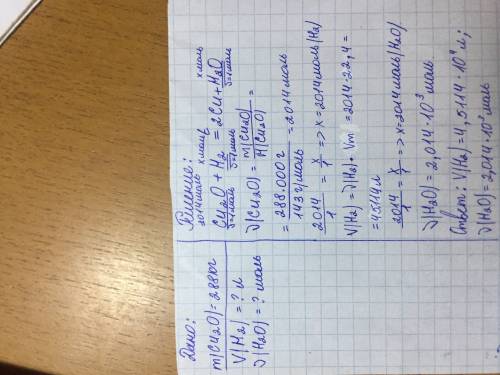 Дано:
m(Cu2O)=288кг
V(H2)=? л
ν(H2O)=? моль
Решение:
2014моль х моль х моль
Cu2O + H2 = 2Cu + H2O
ν=1моль ν=1моль ν=1моль
ν(Cu2O) = m(Cu2O) / M(Cu2O) =
= 288.000г / 143г/моль = 2014моль
2014/1 = x/1 => x=2014моль(H2)
V(H2)=ν(H2)·Vm =2014·22,4=
=45114л
2014/1 = x/1 => x=2014моль(H2O)
ν(H2O)=2,014·10³ моль
Ответ: V(H2)=4,5114·10⁴ л;
ν(H2O)=2,014·10³ моль